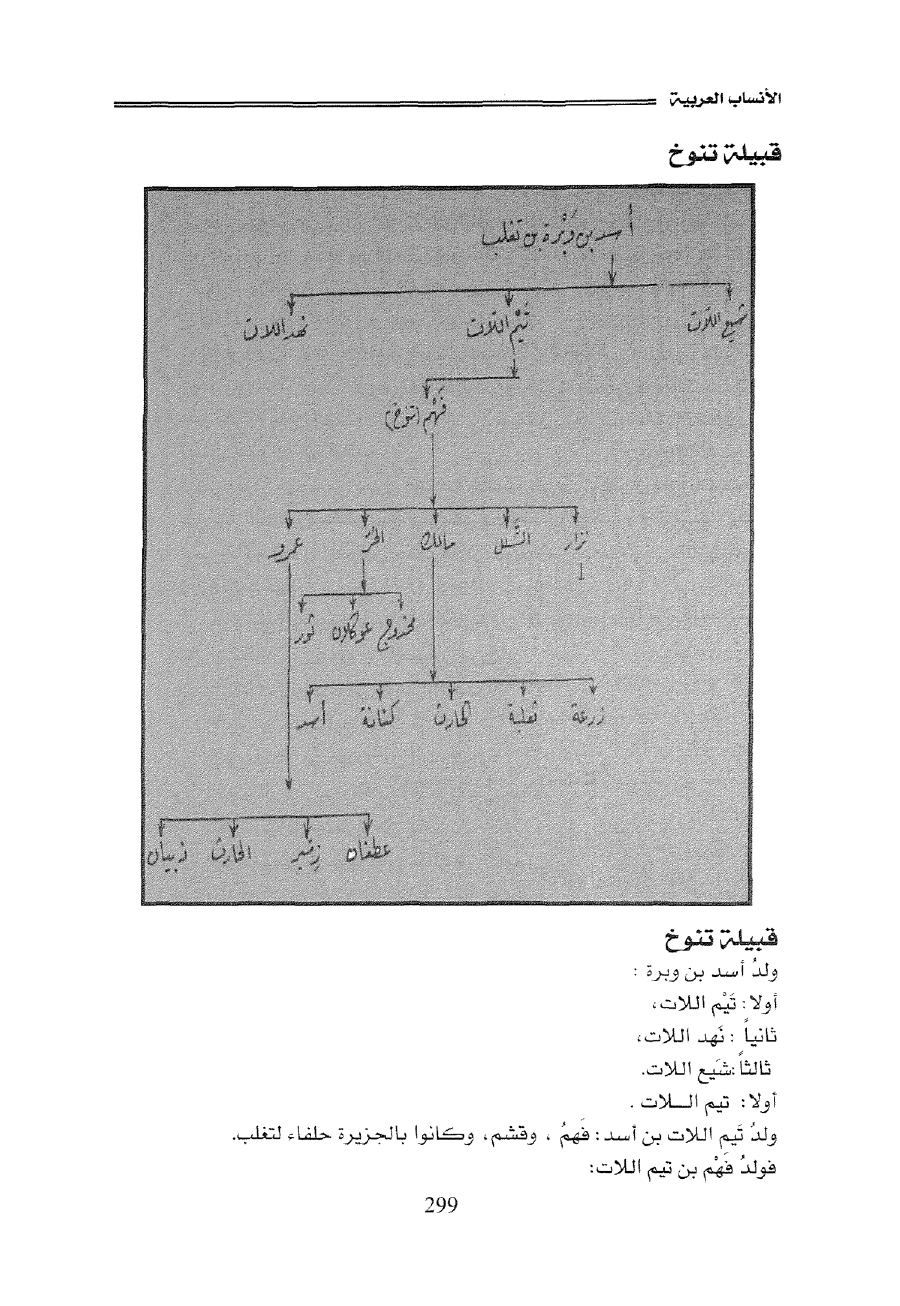 الأنساب العربية
قبيلة تنوخ
أسد بن وَبْرة بن تغلب
شيع اللات تَيْم اللات نهد اللات
فَهْم (تنوخ)
نزار الشلل مالك الحُرّ عمرو
مخدوج عوكلان ثور
زرعة ثعلبة الحارث كنانة أسد
عطفان زهير الحارث ذبيان
قبيلة تنوخ
ولدُ أسد بن وبرة :
أولا: تَيْم اللات،
ثانياً : نَهد اللات،
ثالثاً:شَيع اللات.
أولا: تيم الــلات .
ولدُ تَيم اللات بن أسد: فَهمُ ، وقشم، وكانوا بالجزيرة حلفاء لتغلب.
فولدُ فَهْم بن تيم اللات:
299